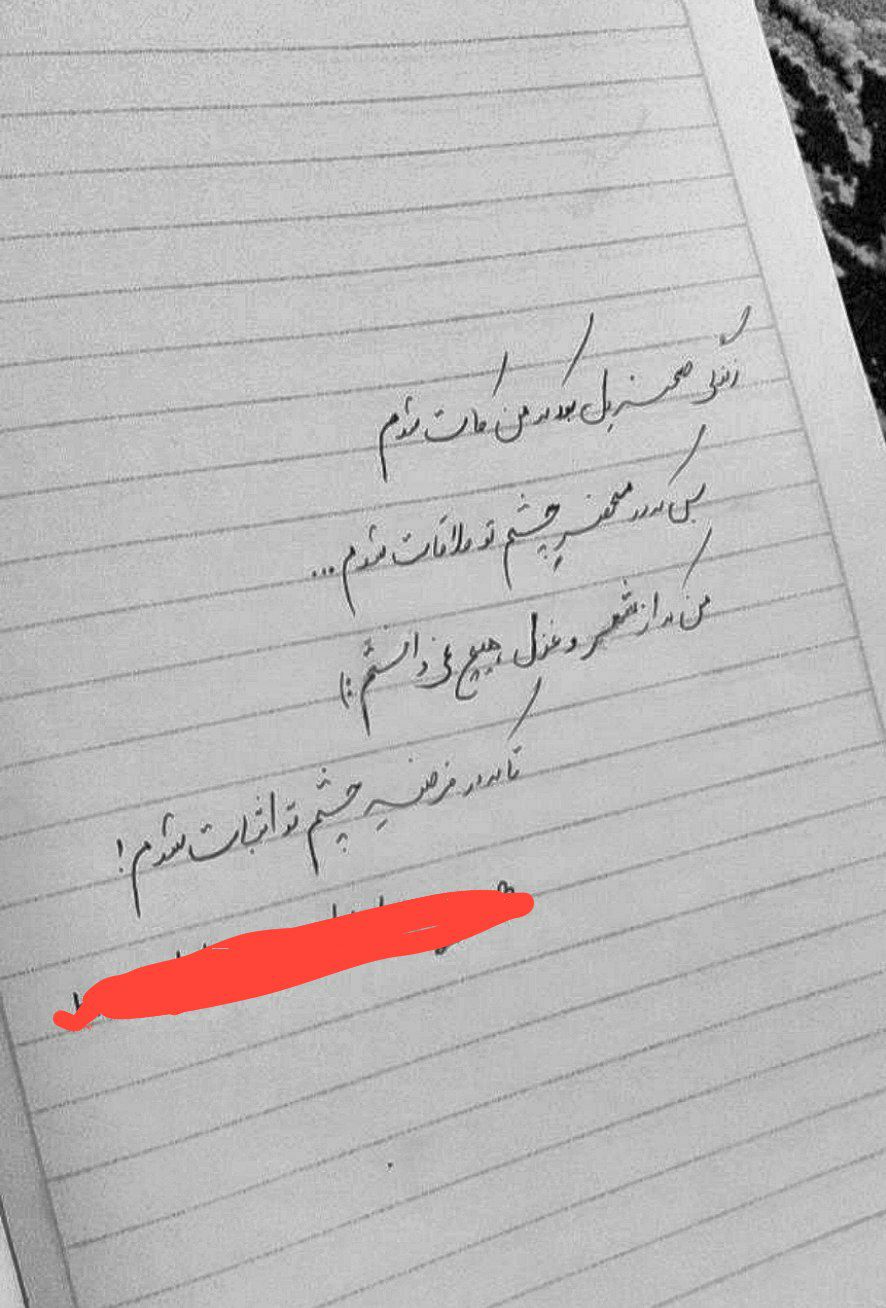 زندگی صحنه بود که من کات شدم
بس که در محضر چشم تو ملاقات شدم ...
من که از شعر و غزل هیچ نمی دانستم :)
تا که در فرضیه چشم تو اثبات شدم !